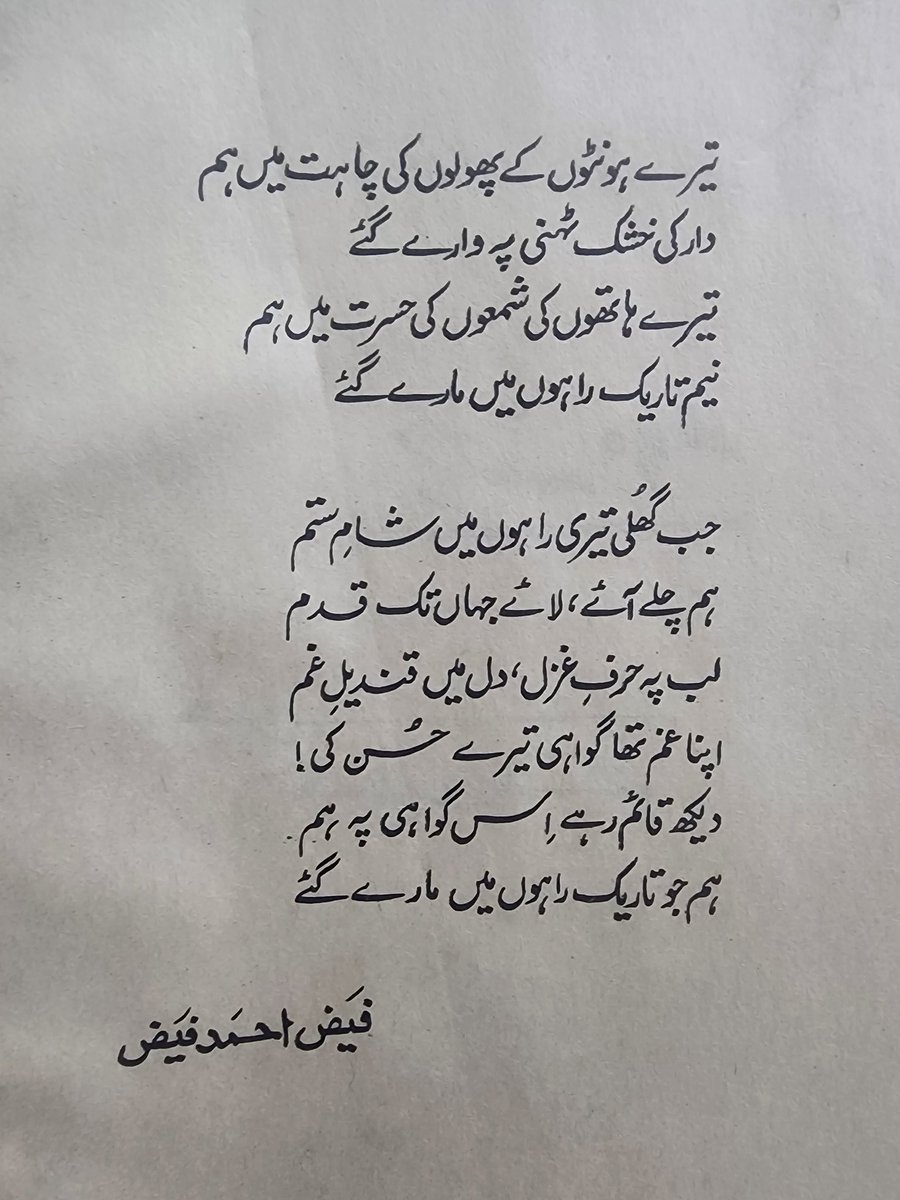 تیرے ہونٹوں کے پھولوں کی چاہت میں ہم
دار کی خشک ٹہنی پہ وارے گئے
تیرے ہاتھوں کی شمعوں کی حسرت میں ہم
نیم تاریک راہوں میں مارے گئے
جب گھُلی تیری راہوں میں شامِ ستم
ہم چلے آئے، لائے جہاں تک قدم
لب پہ حرفِ غزل، دل میں قندیلِ غم
اپنا غم تھا گواہی تیرے حُسن کی!
دیکھ قائم رہے اِس گواہی پہ ہم
ہم جو تاریک راہوں میں مارے گئے
فیَض احمَد فیَض